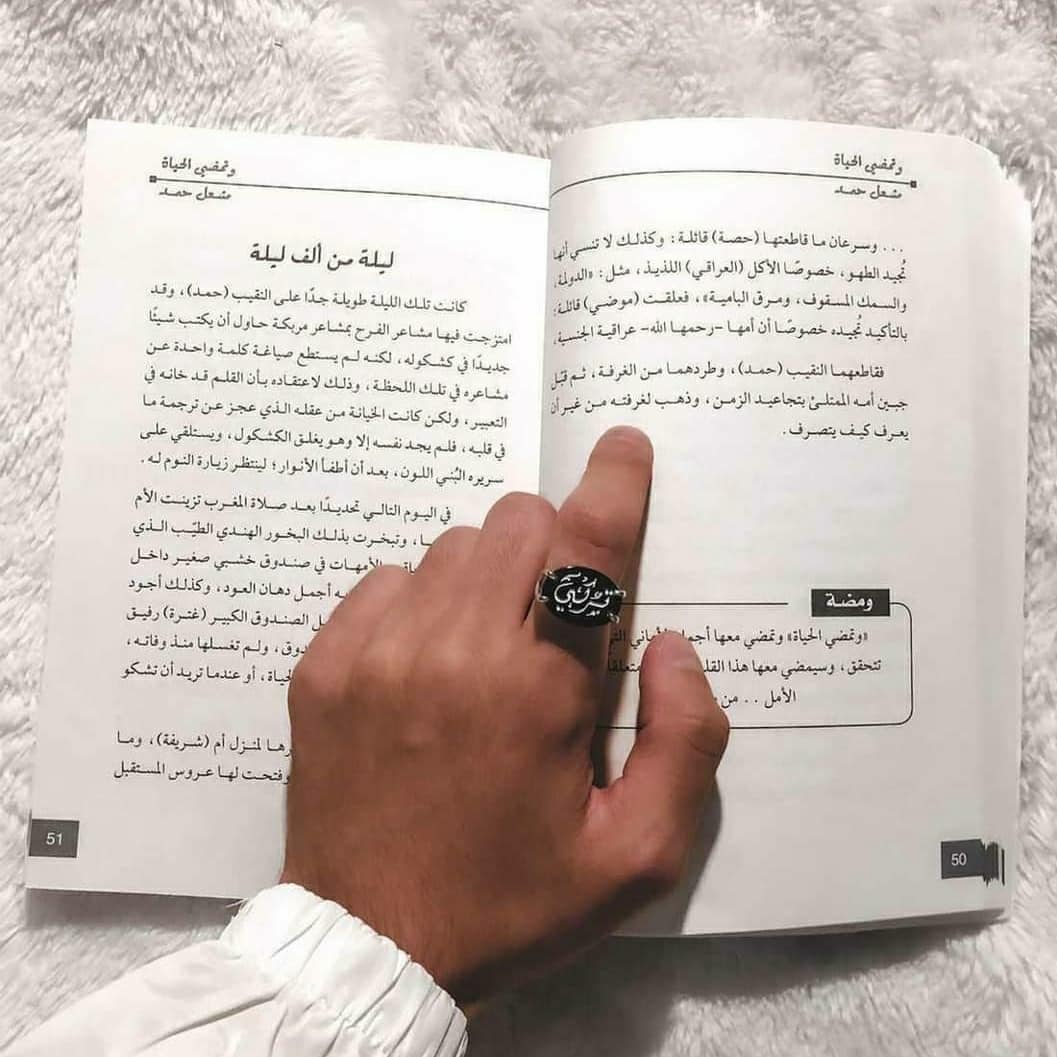 وتمضي الحياة
مشعل حمد
... وسرعان ما قاطعتها (حصة) قائلة: وكذلك لا تنسي أنها
تُجيد الطهو، خصوصًا الأكل (العراقي) اللذيذ، مثل: «الدولمة،
والسمك المسقوف، ومرق البامية»، فعلقت (موضي) قائلة:
بالتأكيد تُجيده خصوصًا أن أمها -رحمها الله- عراقية الجنسية،
فقاطعهما النقيب (حمد)، وطردهما من الغرفة، ثم قبّل
جبين أمه الممتلئ بتجاعيد الزمن، وذهب لغرفته من غير أن
يعرف كيف يتصرف.
ومضة
«وتمضي الحياة» وتمضي معها أجمل الأماني التي
تتحقق، وسيمضي معها هذا القلب متعلقا
الأمل .. من
50
وتمضي الحياة
مشعل حمد
ليلة من ألف ليلة
كانت تلك الليلة طويلة جدًا على النقيب (حمد)، وقد
امتزجت فيها مشاعر الفرح بمشاعر مربكة حاول أن يكتب شيئًا
جديدًا في كشكوله، لكنه لم يستطع صياغة كلمة واحدة عن
مشاعره في تلك اللحظة، وذلك لاعتقاده بأن القلم قد خانه في
التعبير، ولكن كانت الخيانة من عقله الذي عجز عن ترجمة ما
في قلبه، فلم يجد نفسه إلا وهو يغلق الكشكول، ويستلقي على
سريره البُني اللون، بعد أن أطفأ الأنوار؛ لينتظر زيارة النوم له.
في اليوم التالي تحديدًا بعد صلاة المغرب تزينت الأم
وتبخرت بذلك البخور الهندي الطيّب الذي
الأمهات في صندوق خشبي صغير داخل
أجمل دهان العود، وكذلك أجود
الصندوق الكبير (غترة) رفيق
ولم تغسلها منذ وفاته،
أو عندما تريد أن تشكو
لمنزل أم (شريفة)، وما
وفتحت لها عروس المستقبل
51